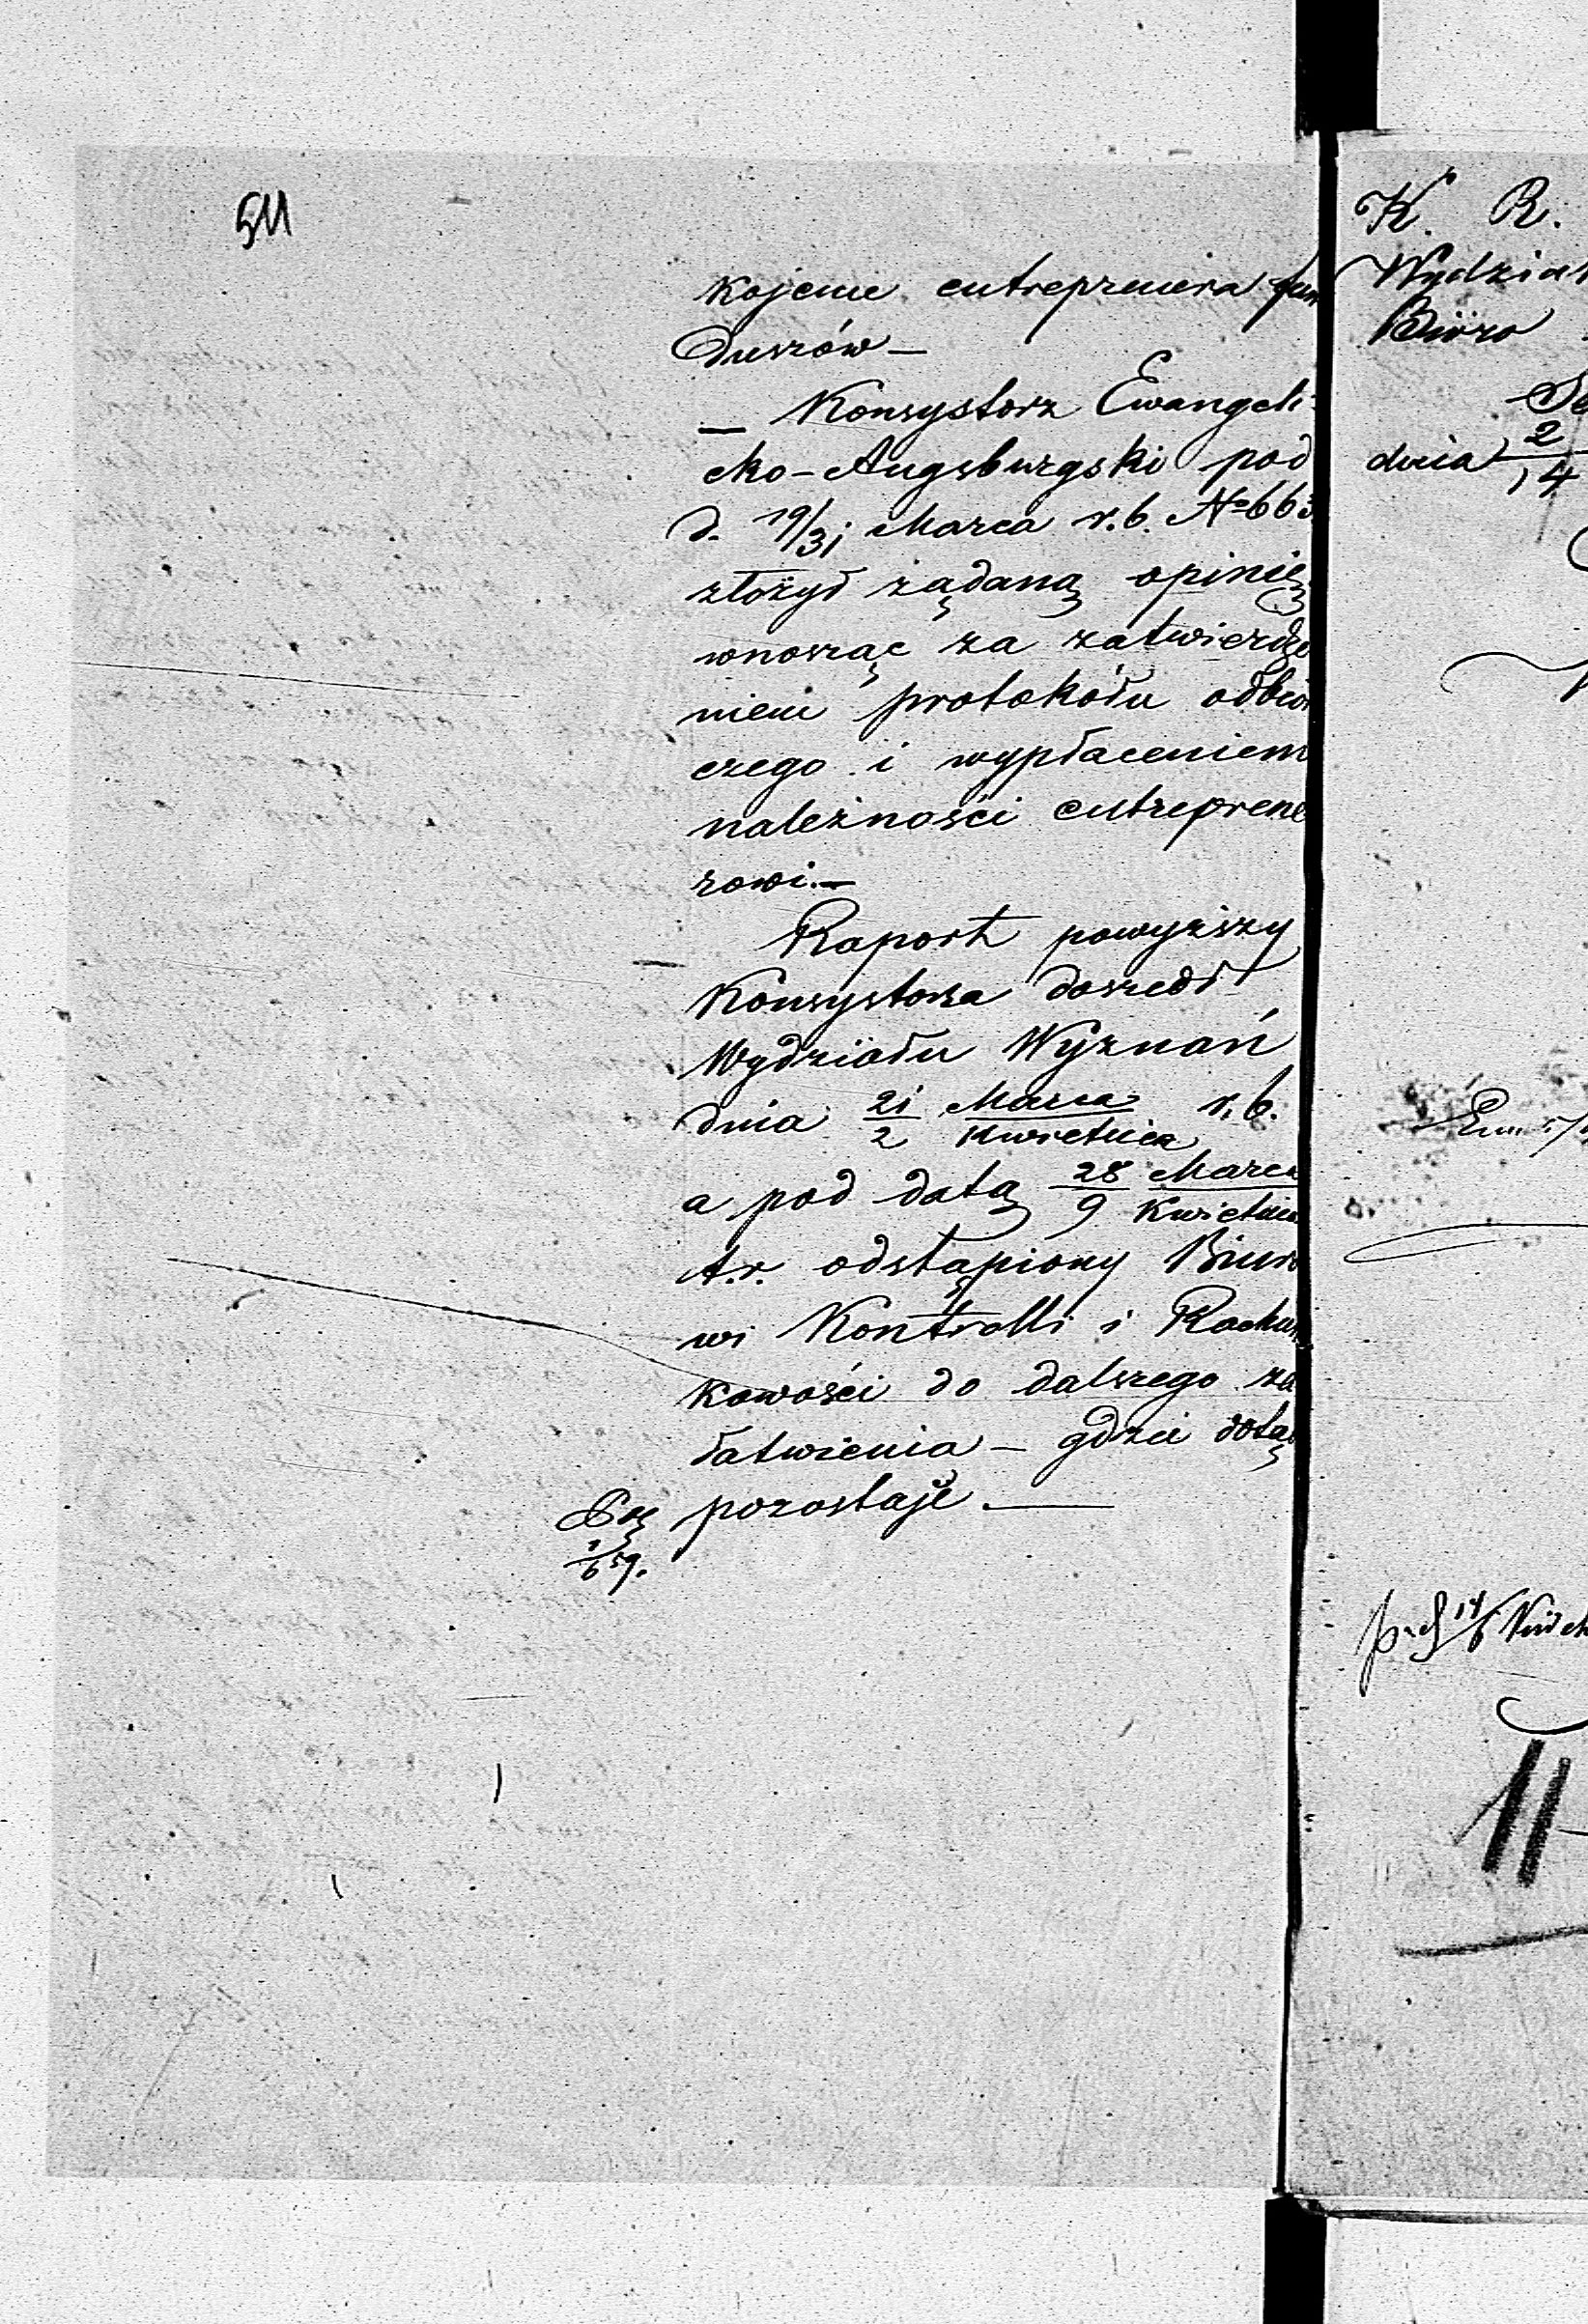 511
kojenie entreprenera fun
duszów —
— Konsystorz Ewangeli-
cko-Augsburgski pod
d. 19/31 Marca r.b. № 663
złożył żądaną opinię
wnosząc za zatwierdze
niem protokółu odbior
czego i wypłaceniem
należności entreprene
rowi. —
Raport powyższy
Konsystorza doszedł
Wydziału Wyznań
dnia 21/2 Marca/Kwietnia r.b.
a pod datą 28/9 Marca/Kwietnia
t.r. odstąpiony Biuro
wi Kontrolli i Rachun
kowości do dalszego za
łatwienia — gdzie dotąd
pozostaje. —
K. R.
Wydział
Biuro
dnia 2/14
11